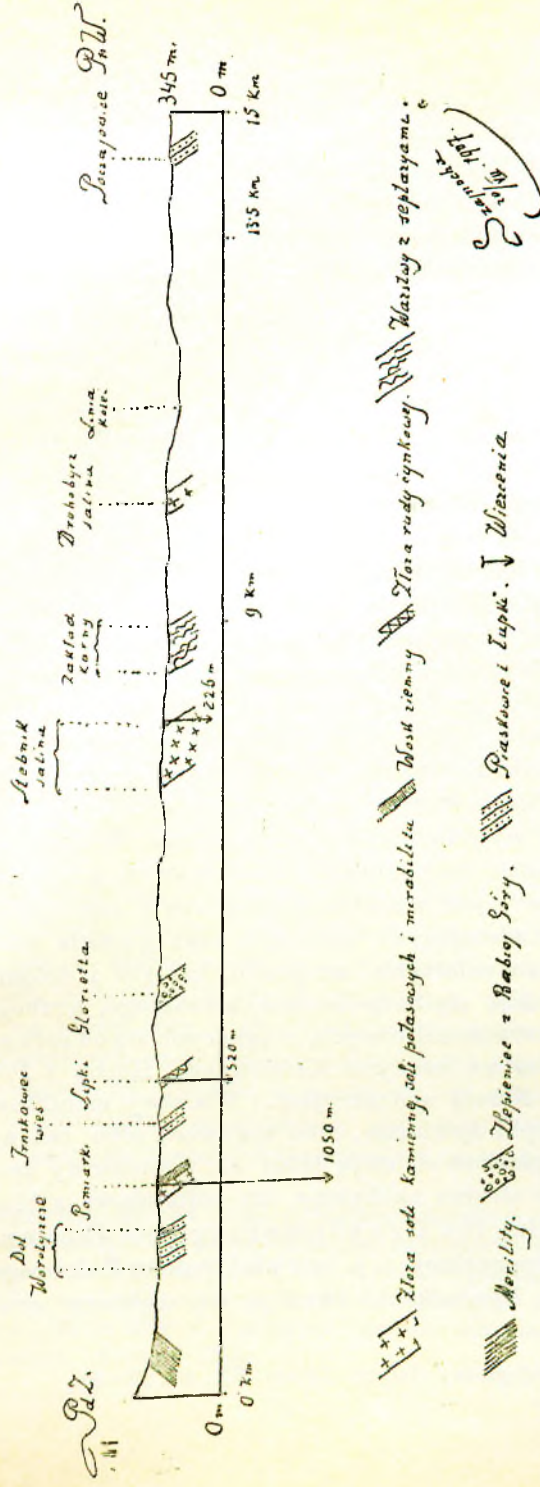 PdZ.
Dol
Worotyszcze
Pomiarki
Truskawiec
wieś
Lipki
Glorietta
Stebnik
salina
Zakład
karny
Drohobycz
salina
Linia
kole.
Poczajowice
PnW.
345 m.
0 m
0 m
0 km
1050 m.
520 m
226 m
9 km
13·5 km
15 km
Złoża soli kamiennej, soli potasowych i mirabilitu
Wosk ziemny
Złoża rudy cynkowej.
Warstwy z septaryami.
Menility.
Zlepieniec z Babiej Góry.
Piaskowce i Łupki.
Wiercenia
Szajnocha
20/VII. 1907.